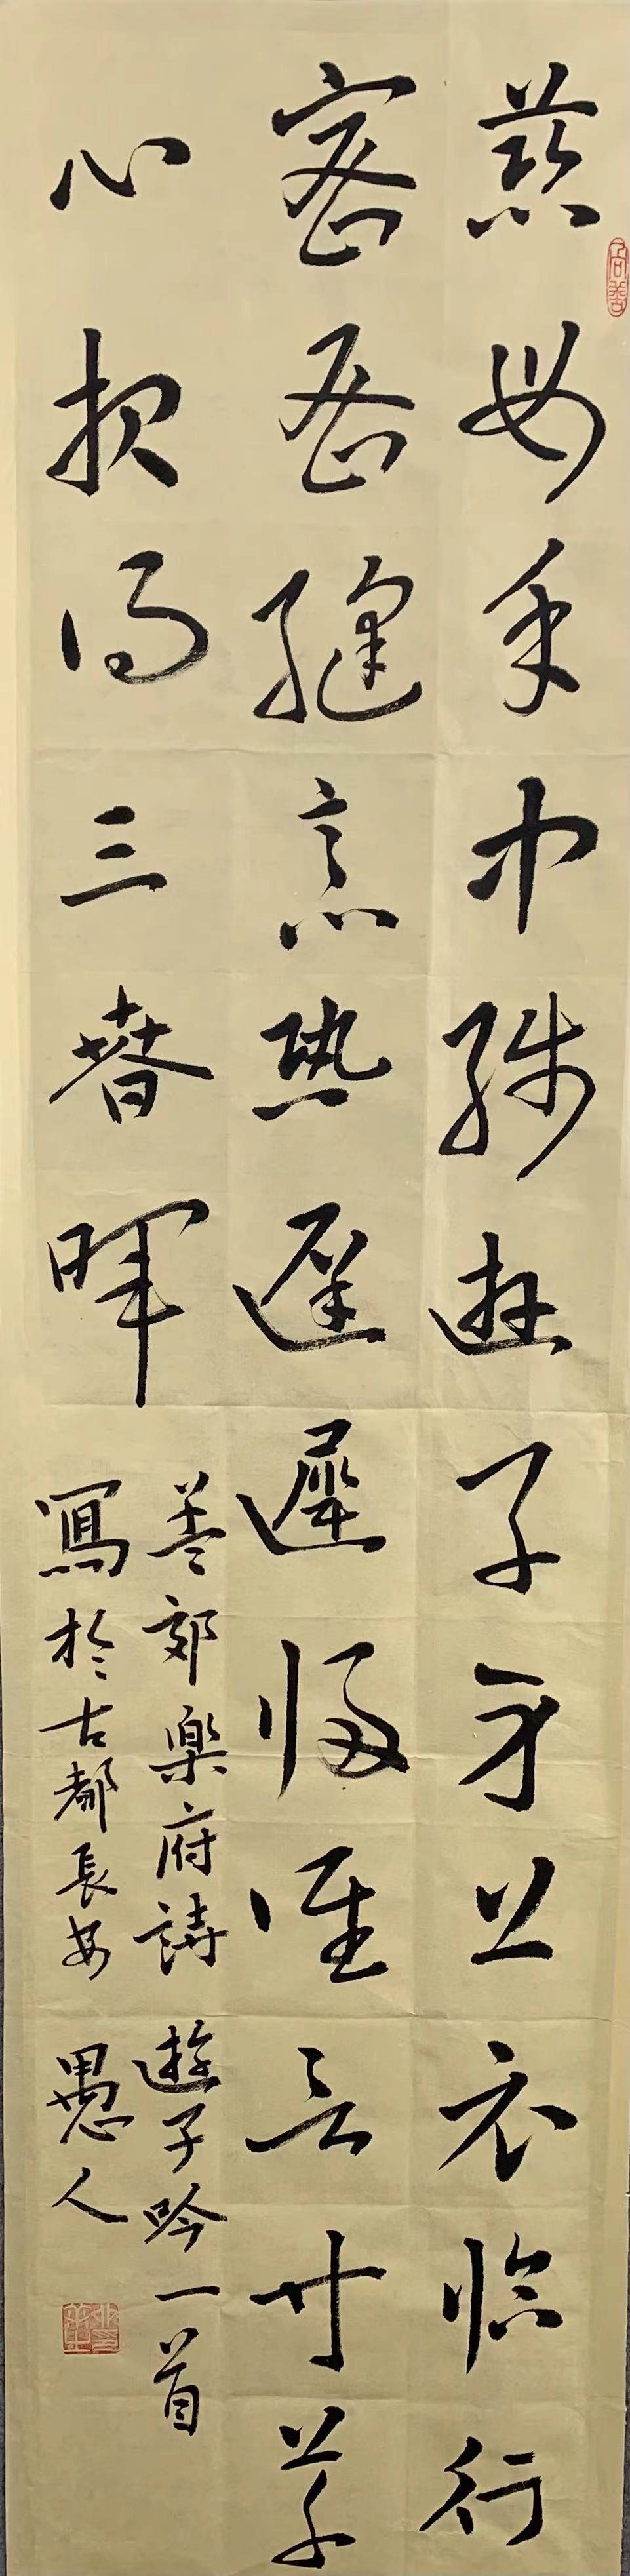 慈母手中綫遊子身上衣臨行
密密縫意恐遲遲歸誰言寸草
心報得三春暉
孟郊樂府詩 遊子吟一首
寫於古都長安 愚人